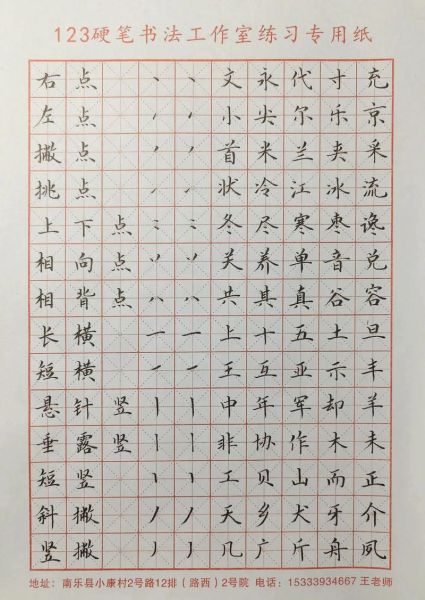 123硬笔书法工作室练习专用纸
右点 丶丶文永代寸充
左点 ㇒㇒小尖尔乐京
撇点 ㇒㇒首米兰夹采
挑点 ㇀㇀状冷江冰流
上下点 冬尽寒枣谗
相向点 丷丷关养单音兑
相背点 八八共其真谷容
长横 一一上十五土旦
短横 一一王互亚示丰
悬针竖 丨丨中年军却羊
垂露竖 丨丨非协作木未
短竖 丨丨工贝山而正
斜撇 丿丿天乡犬牙介
竖撇 丿丿几广斤舟夙
地址：南乐县小康村2号路12排（路西）2号院 电话：15333934667 王老师